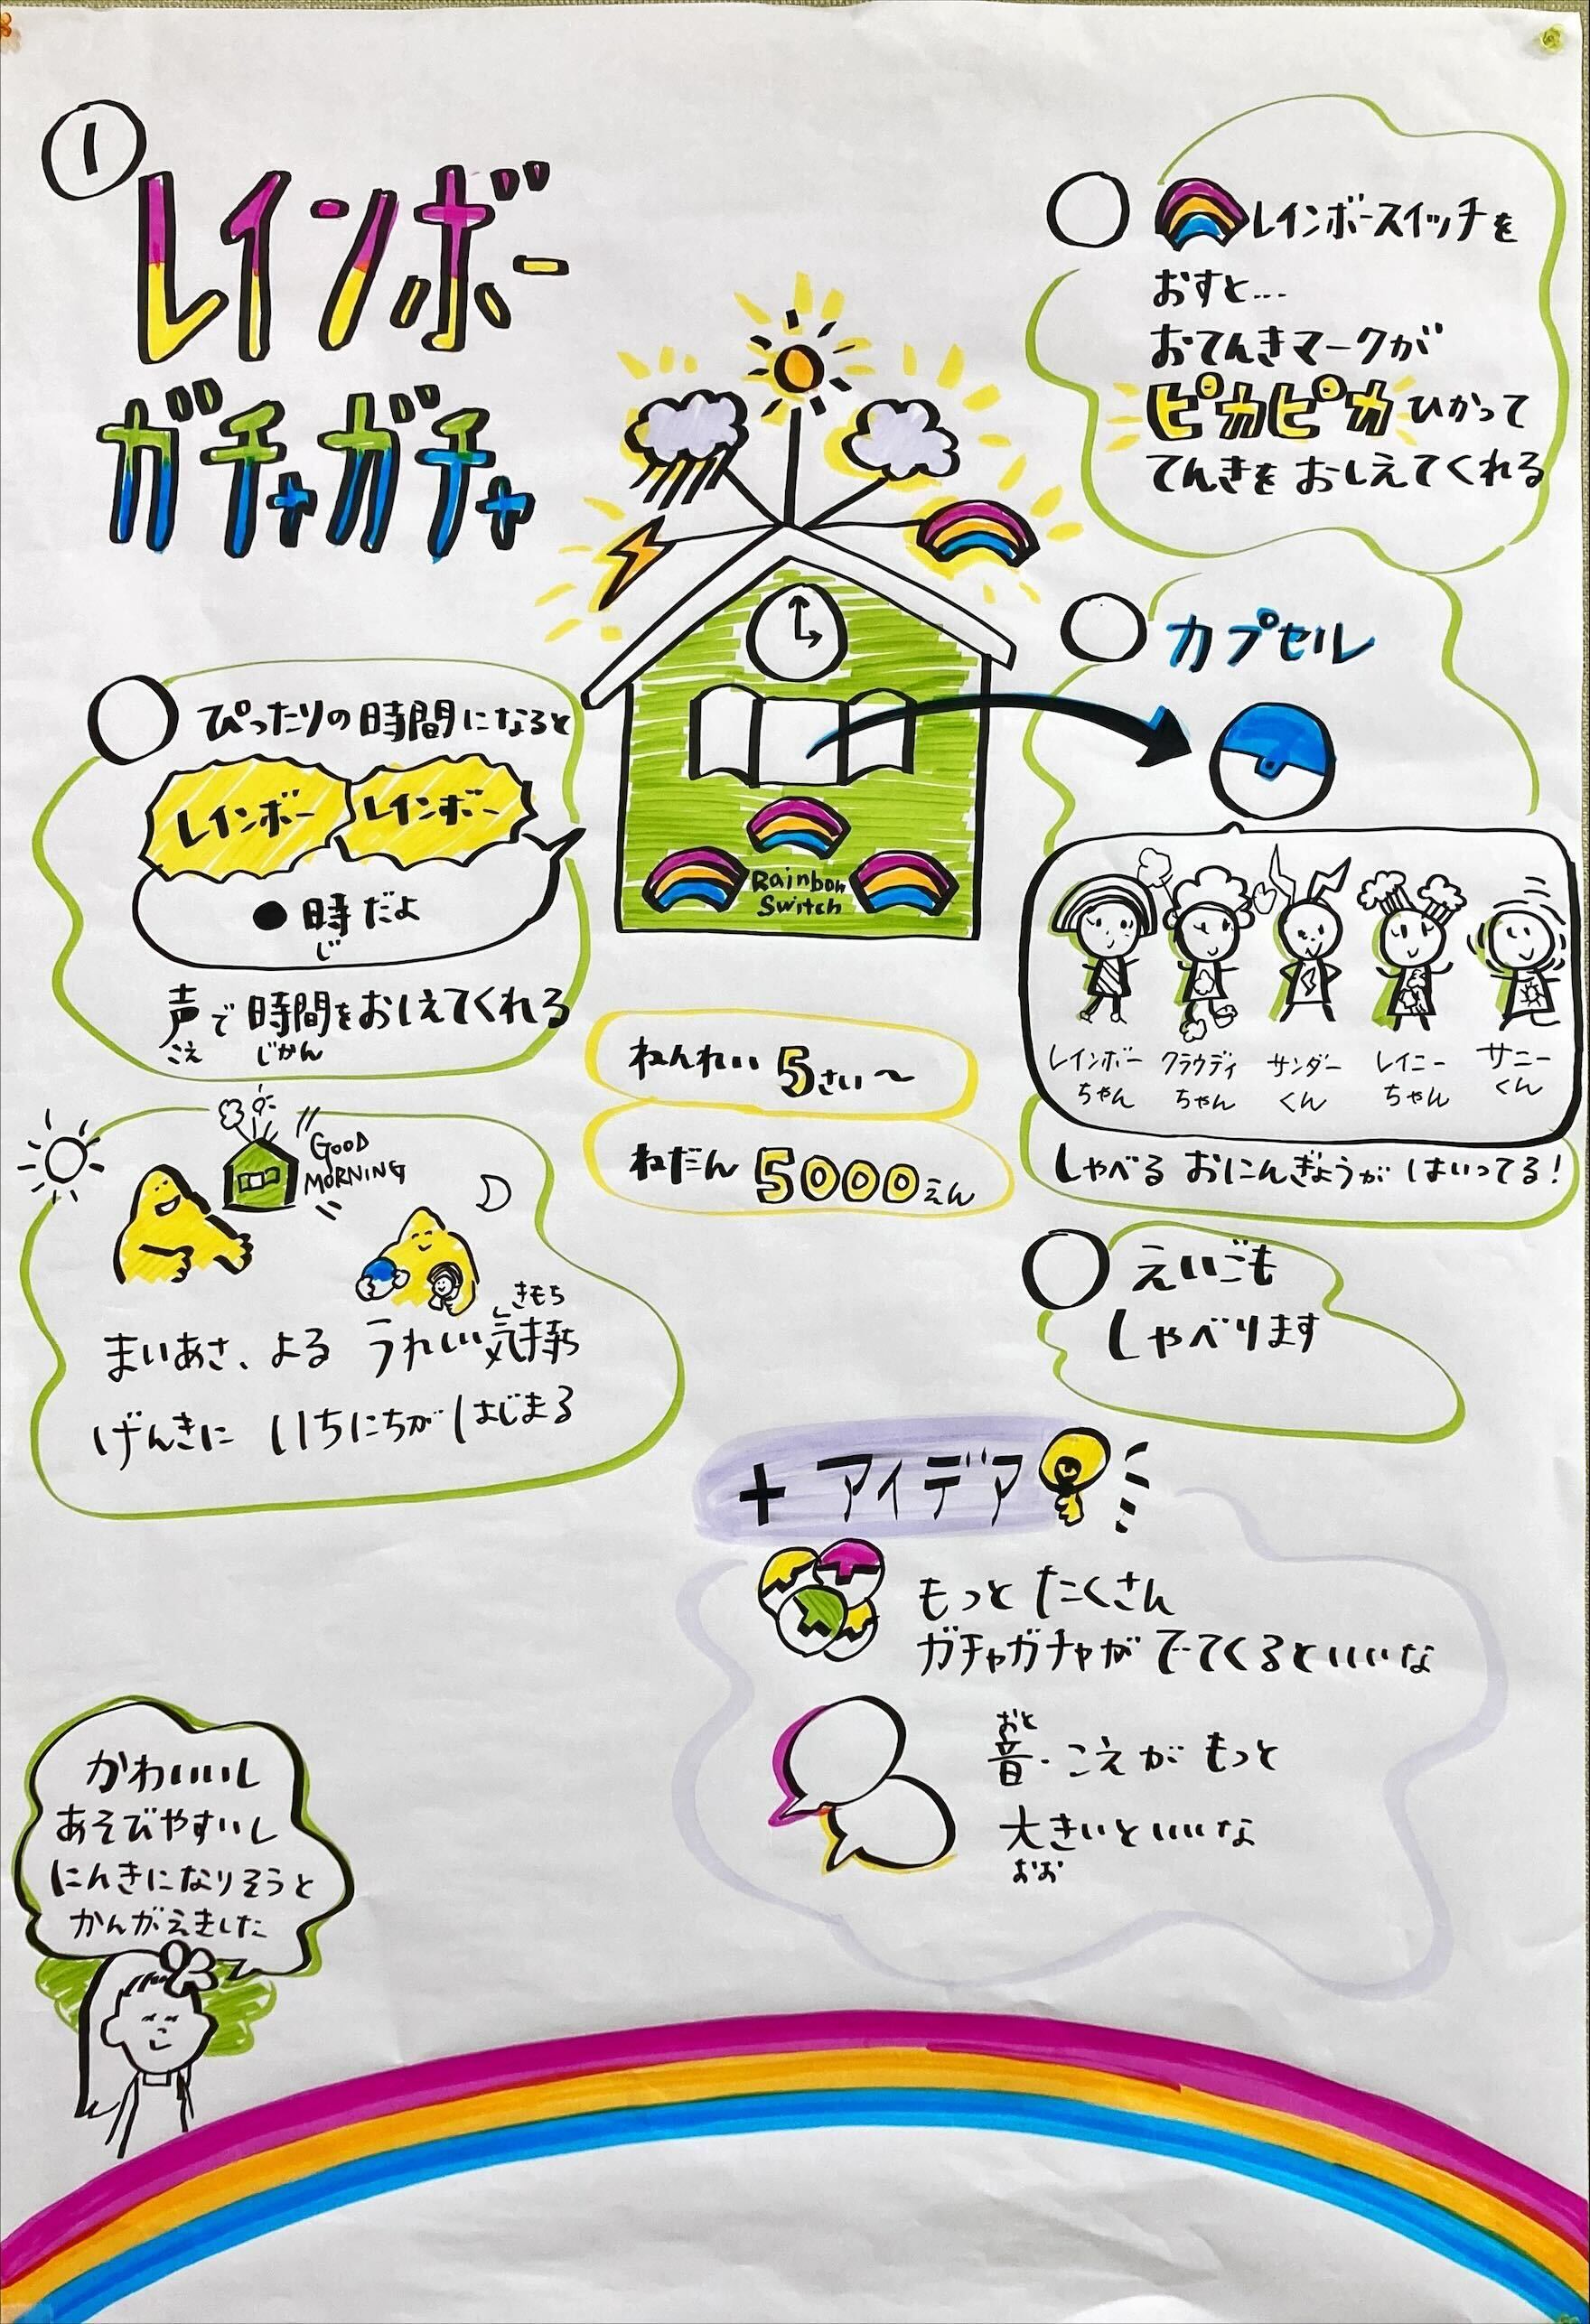 ①
レインボー
ガチャガチャ
レインボースイッチを
おすと…
おてんきマークが
ピカピカ ひかって
てんきを おしえてくれる
カプセル
ぴったりの時間になると
レインボー レインボー
●時だよ
じ
声で時間をおしえてくれる
こえ じかん
Rainbow
Switch
レインボー
ちゃん
クラウディ
ちゃん
サンダー
くん
レイニー
ちゃん
サニー
くん
しゃべる おにんぎょうが はいってる!
ねんれい 5さい〜
ねだん 5000えん
GOOD
MORNING
きもち
まいあさ、よる うれしい気持ち
げんきに いちにちが はじまる
えいごも
しゃべります
+ アイデア
もっと たくさん
ガチャガチャが でてくるといいな
おと
音・こえが もっと
大きいといいな
おお
かわいいし
あそびやすいし
にんきになりそうと
かんがえました